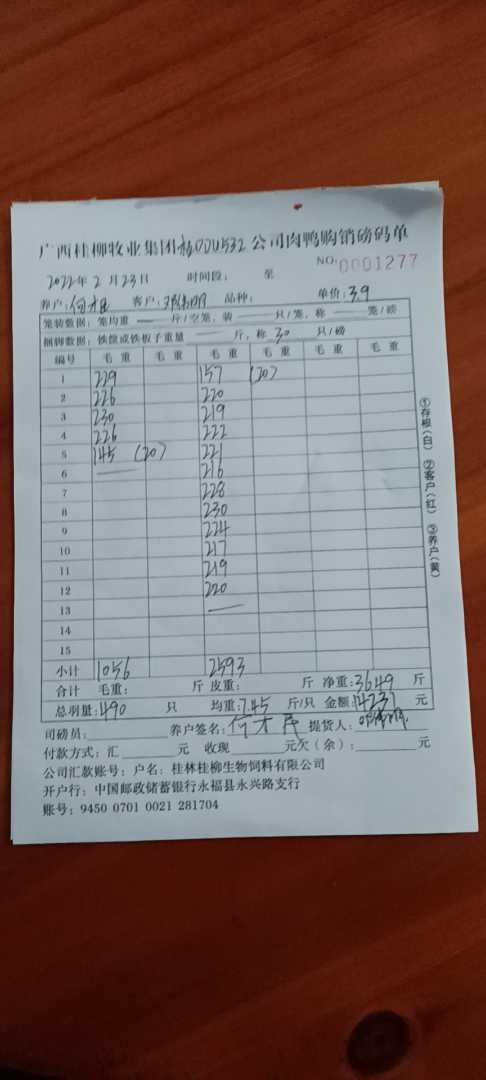 广西桂柳牧业集团杨000532公司肉鸭购销磅码单
NO: 0001277
2022年 2 月 23 日 时间段： 至
养户： 客户：邓伟明 品种： 单价：3.9
笼装数据：笼均重 — 斤/空笼，装 — 只/笼，称 — 笼/磅
捆脚数据：铁丝或铁板子重量 — 斤，称 30 只/磅
编号 毛 重 毛 重 毛 重 毛 重 毛 重 毛 重
1 229 157 (20)
2 226 220
3 230 219
4 226 222
5 145 (20) 221
6 — 216
7 228
8 230
9 224
10 217
11 219
12 220
13 —
14
15
小计 1056 2593
合计 毛重： 斤 皮重： 斤 净重：3649 斤
总羽量：490 只 均重：7.45 斤/只 金额：14231 元
司磅员： 养户签名： 提货人：
付款方式：汇 元 收现 元欠（余）： 元
公司汇款账号：户名：桂林桂柳生物饲料有限公司
开户行：中国邮政储蓄银行永福县永兴路支行
账号：9450 0701 0021 281704
①存根（白） ②客户（红） ③养户（黄）